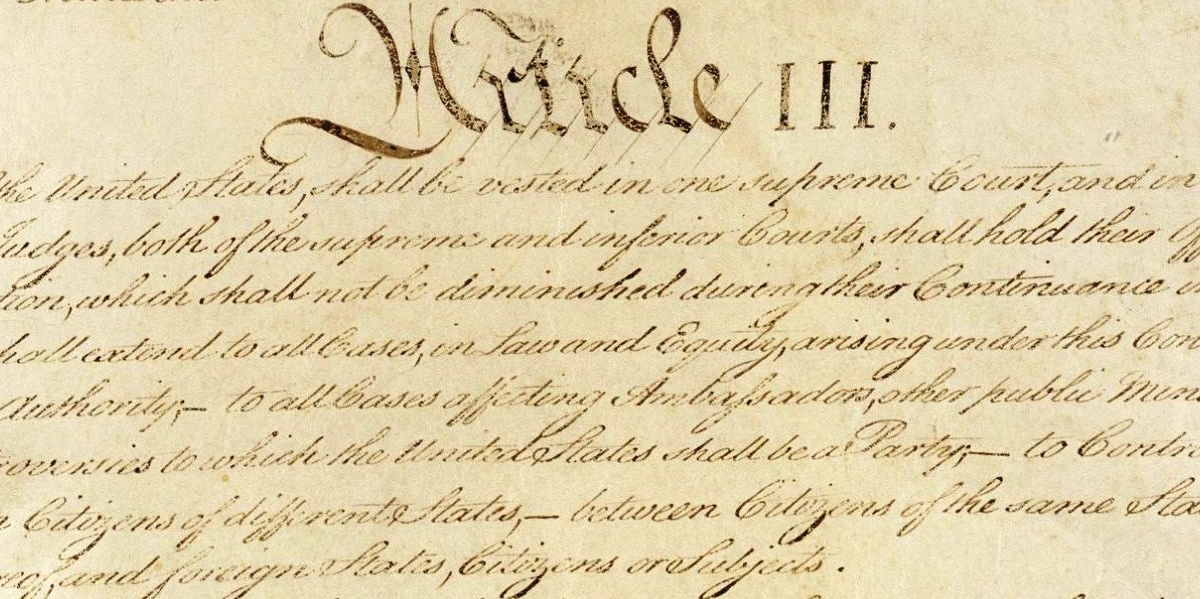 Article III.
the United States, shall be vested in one supreme Court, and in
Judges, both of the supreme and inferior Courts, shall hold their Off
tion, which shall not be diminished during their Continuance in
hall extend to all Cases, in Law and Equity, arising under this Con
Authority;— to all Cases affecting Ambassadors, other public Minis
roversies to which the United States shall be a Party;— to Contro
n Citizens of different States,— between Citizens of the same Sta
reof, and foreign States, Citizens or Subjects.